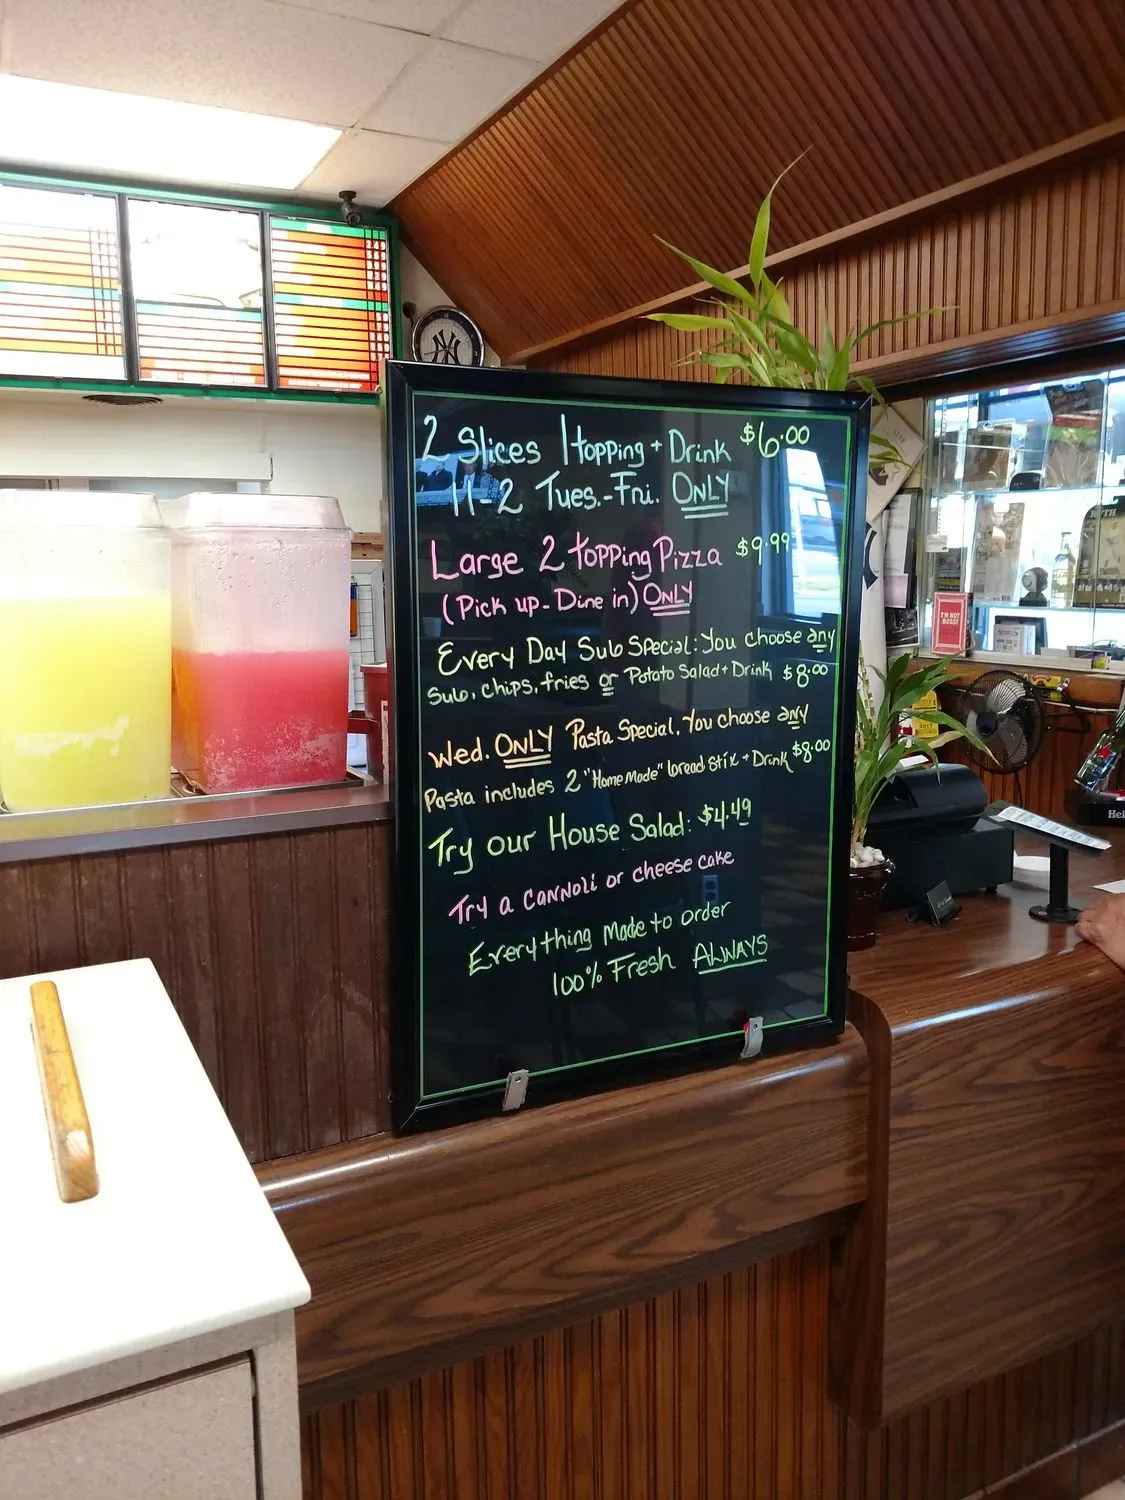 2 Slices 1 topping + Drink $6.00
11-2 Tues.-Fri. ONLY
Large 2 topping Pizza $9.99
(Pick up - Dine in) ONLY
Every Day Sub Special: You choose any
Sub, chips, fries or Potato Salad + Drink $8.00
Wed. ONLY Pasta Special. You choose any
Pasta includes 2 "Home Made" bread stix + Drink $8.00
Try our House Salad: $4.49
Try a cannoli or cheese cake
Everything Made to order
100% Fresh ALWAYS
I'M NOT
BOSSY
Hei